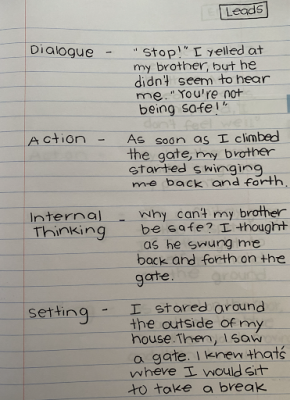 Leads
Dialogue - "Stop!" I yelled at
my brother, but he
didn't seem to hear
me. "You're not
being safe!"
Action - As soon as I climbed
the gate, my brother
started swinging
me back and forth.
Internal Thinking - Why can't my brother
be safe? I thought
as he swung me
back and forth on the
gate.
Setting - I stared around
the outside of my
house. Then, I saw
a gate. I knew that's
where I would sit
to take a break